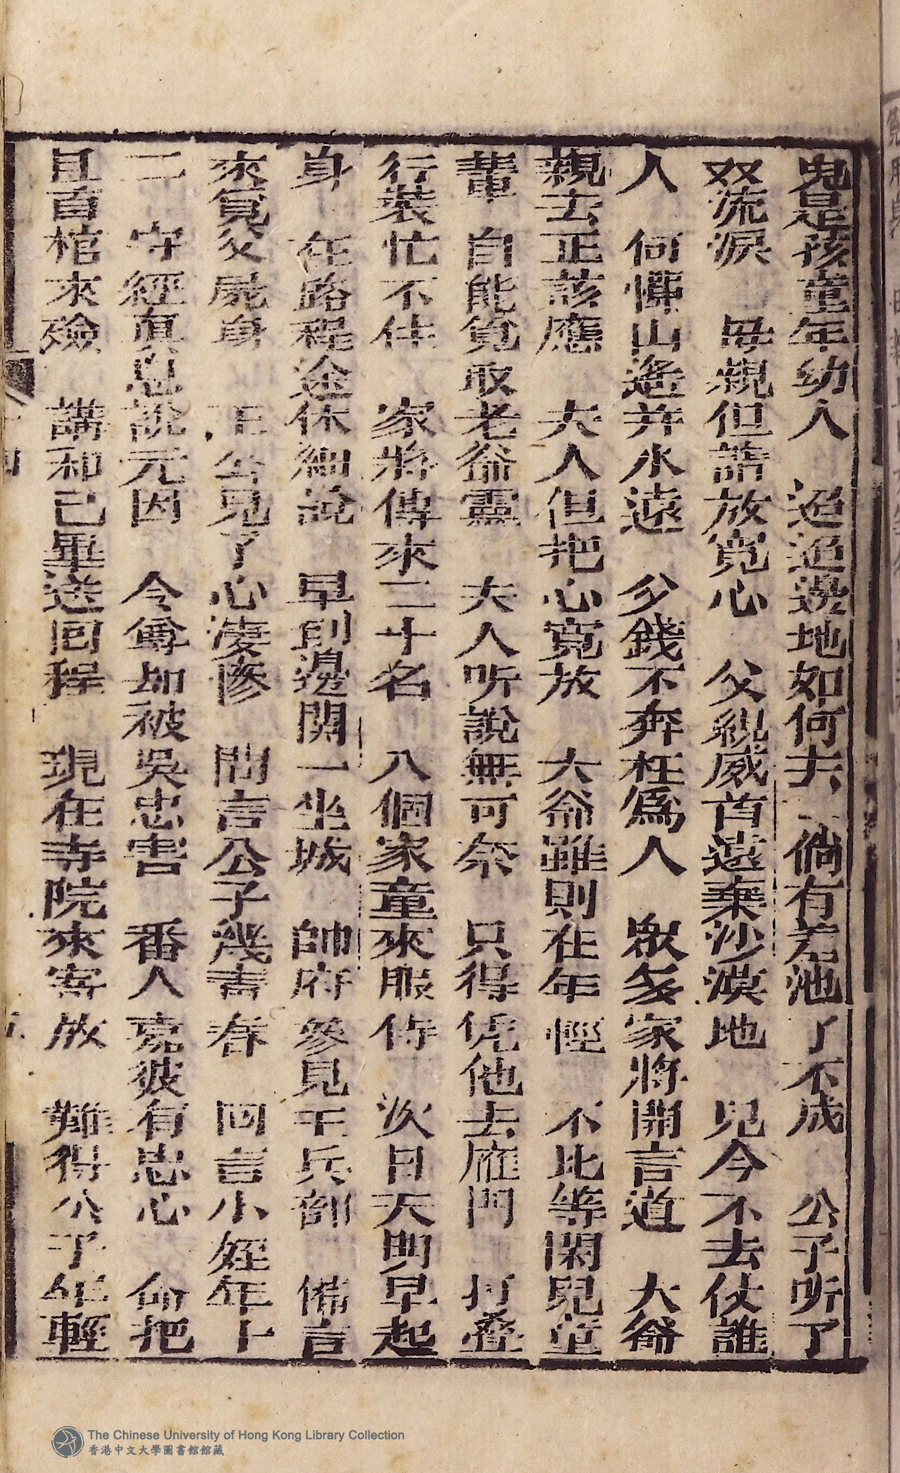 兒是孩童年幼人　迢迢邊地如何去　倘有差池了不成　公子听了
双流淚　母親但請放寬心　父親威首遠葉沙漠地　兒今不去仗誰
人　何懼山遙并水遠　少錢不奔枉為人　眾多家將開言道　大爺
親去正該應　夫人但把心寬放　大爺雖則在年輕　不比等閑兒童
輩　自能覓取老爺靈　夫人听說無可奈　只得凭他去雁門　打叠
行裝忙不住　家將傳來二十名　八個家童來服侍　次日天明早起
身　在路程途休細說　早到邊關一坐城　帥府參見王兵部　備言
來覓父屍身　王公見了心淒慘　問言公子幾青春　回言小姪年十
二　守經真息說元因　令尊却被吳忠害　番人竟彼有忠心　命把
且首棺來殮　講和已畢送回程　現在寺院來寄放　難得公子年輕
The Chinese University of Hong Kong Library Collection
香港中文大學圖書館館藏